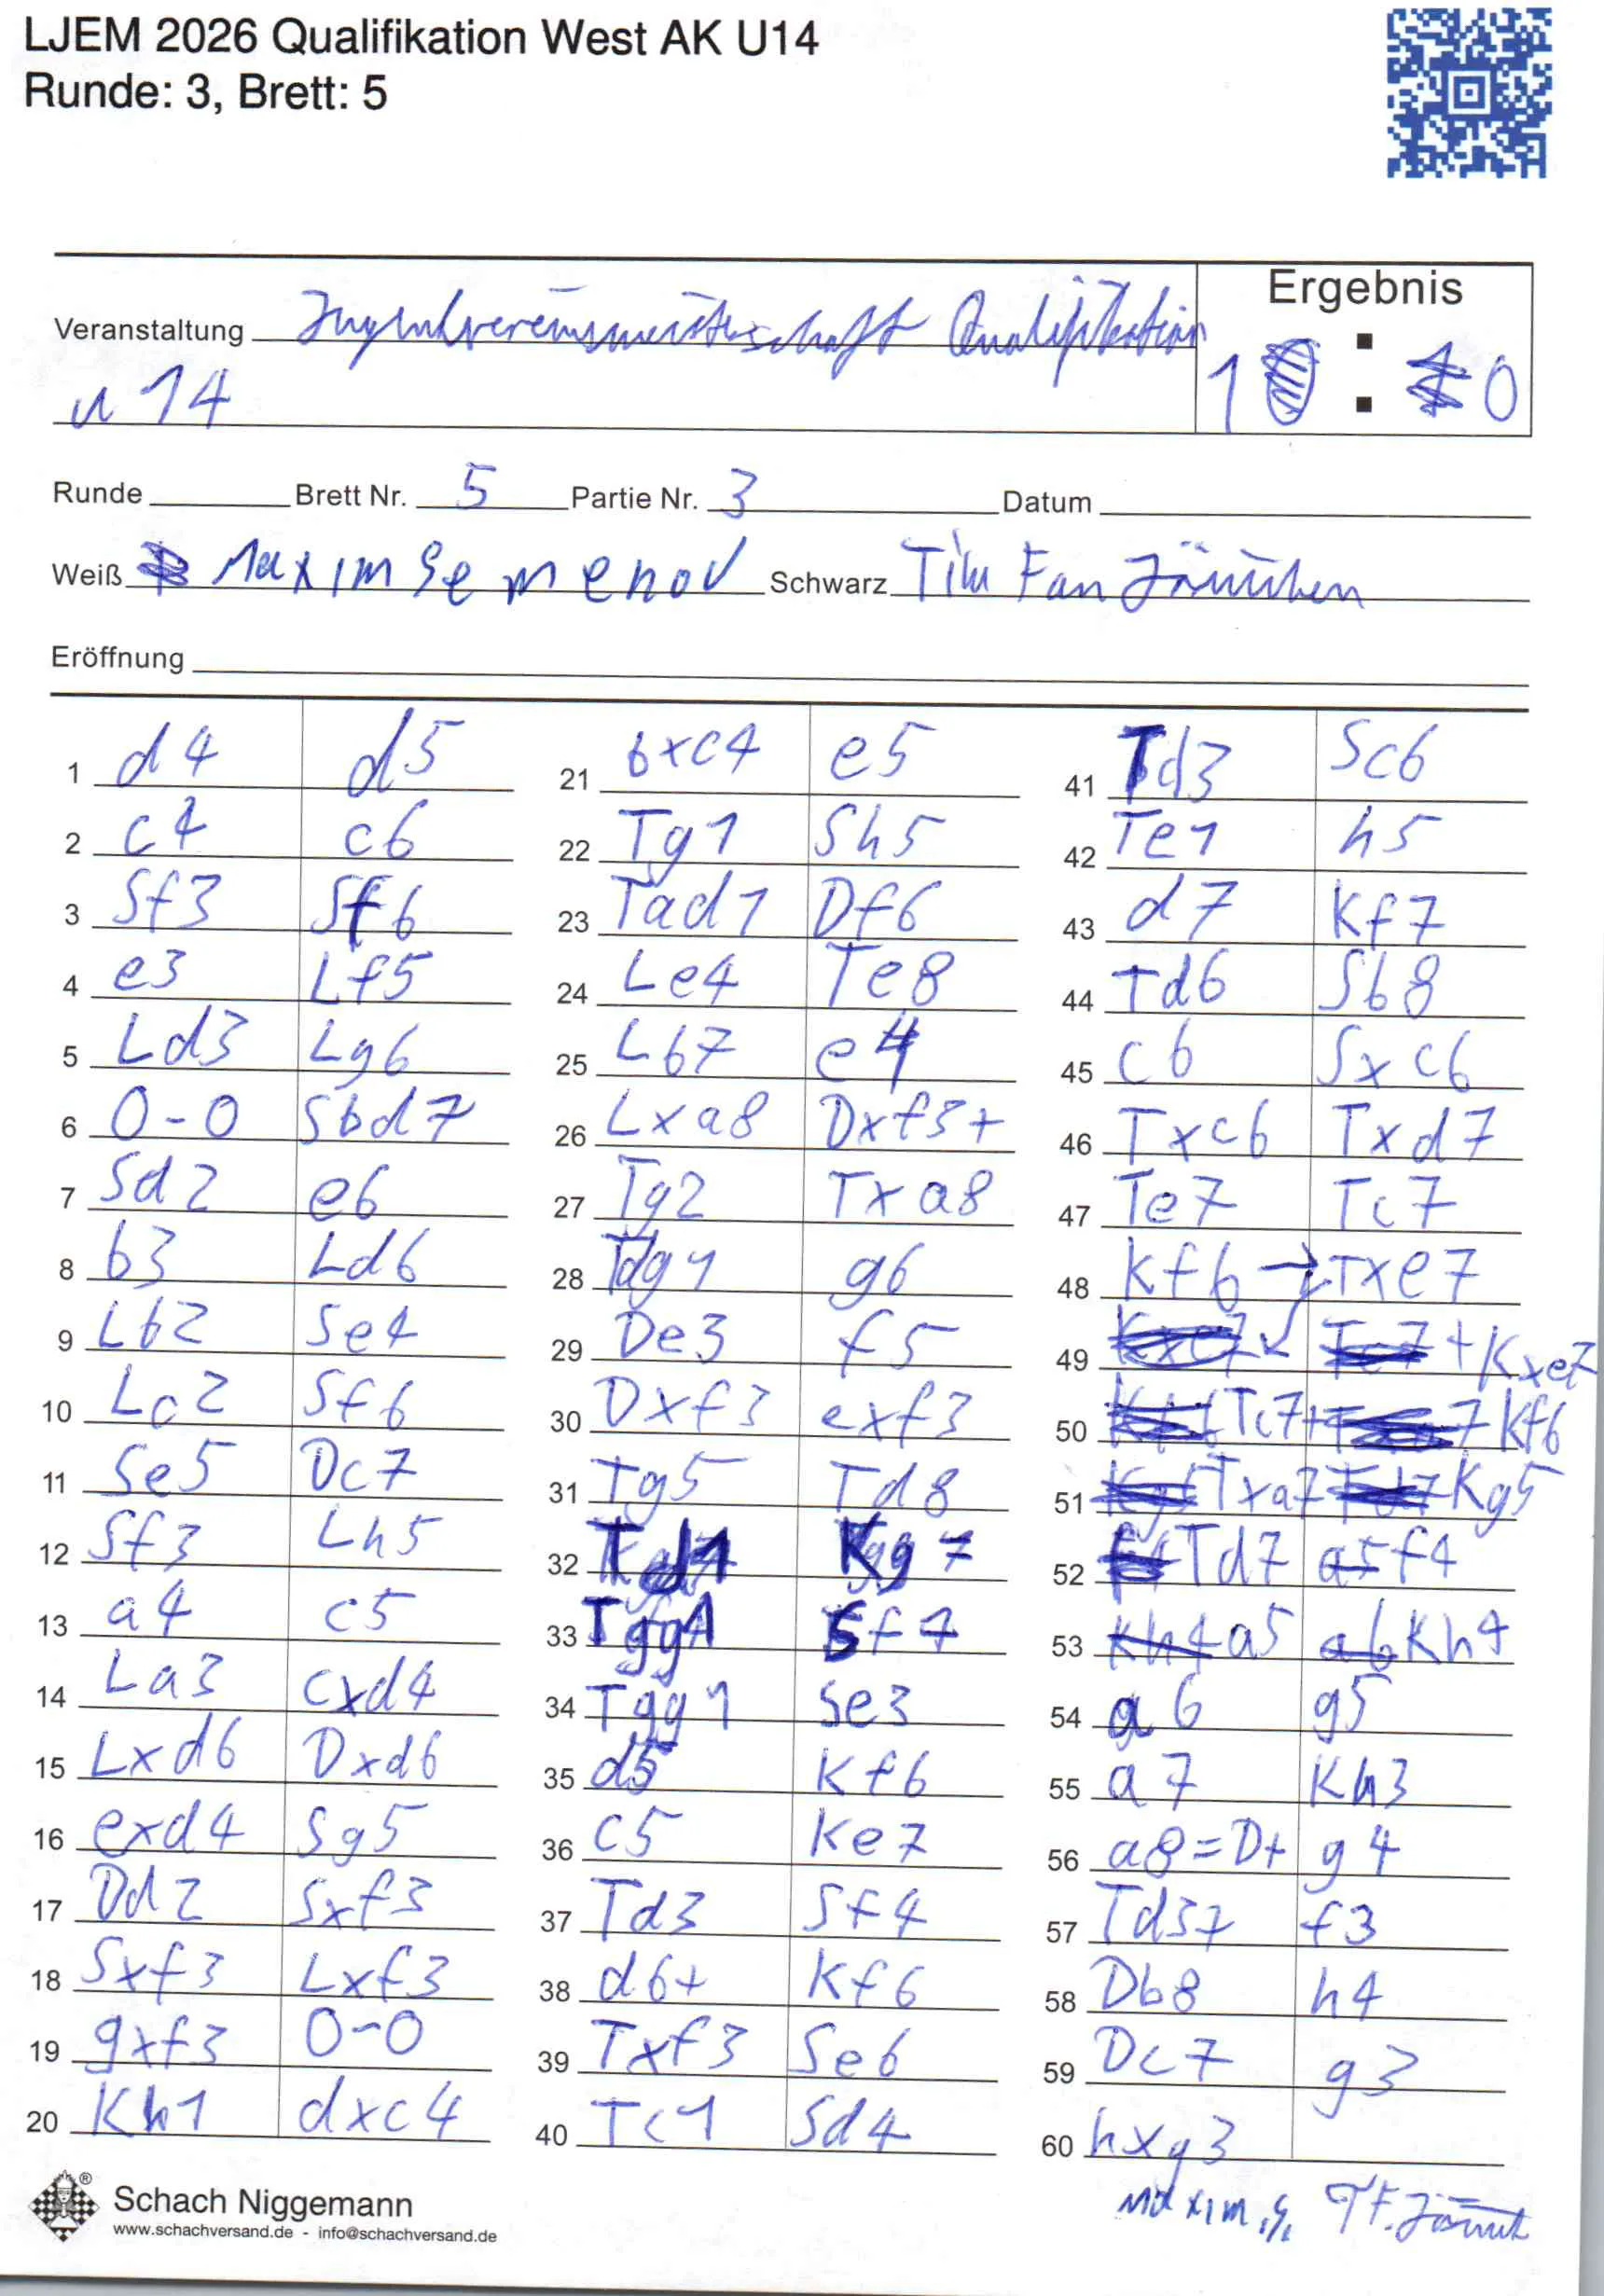 LJEM 2026 Qualifikation West AK U14
Runde: 3, Brett: 5
Veranstaltung Jugendvereinsmeisterschaft Qualifikation
u 14
Ergebnis
1 : 0
Runde Brett Nr. 5 Partie Nr. 3 Datum
Weiß Maxim Semenov Schwarz Tilu Fan
Eröffnung
1 d4 d5
2 c4 c6
3 Sf3 Sf6
4 e3 Lf5
5 Ld3 Lg6
6 0-0 Sbd7
7 Sd2 e6
8 b3 Ld6
9 Lb2 Se4
10 Lc2 Sf6
11 Se5 Dc7
12 Sf3 Lh5
13 a4 c5
14 La3 cxd4
15 Lxd6 Dxd6
16 exd4 Sg5
17 Dd2 Sxf3
18 Sxf3 Lxf3
19 gxf3 0-0
20 Kh1 dxc4
21 bxc4 e5
22 Tg1 Sh5
23 Tad1 Df6
24 Le4 Te8
25 Lb7 e4
26 Lxa8 Dxf3+
27 Tg2 Txa8
28 Tdg1 g6
29 De3 f5
30 Dxf3 exf3
31 Tg5 Td8
32 Td1 Kg7
33 Tgg1 Sf4
34 Tgg1 Se3
35 d5 Kf6
36 c5 Ke7
37 Td3 Sf4
38 d6+ Kf6
39 Txf3 Se6
40 Tc1 Sd4
41 Td3 Sc6
42 Te1 h5
43 d7 Kf7
44 Td6 Sb8
45 c6 Sxc6
46 Txc6 Txd7
47 Te7 Tc7
48 Kf6 → Txe7
49 + Kxe7
50 Tc7+ 7 Kf6
51 Txa7 Kg5
52 Td7 a5 f4
53 Kh4 a5 a6 Kh4
54 a6 g5
55 a7 Kh3
56 a8=D+ g4
57 Td37 f3
58 Db8 h4
59 Dc7 g3
60 hxg3
Maxim.S. T F.
®
Schach Niggemann
www.schachversand.de - info@schachversand.de